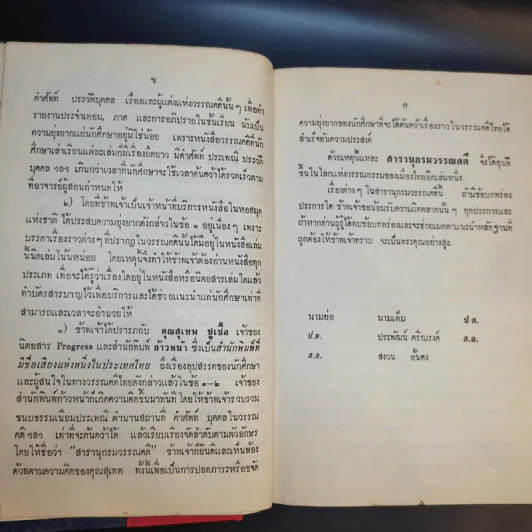 ข
คำศัพท์ ประวัติบุคคล เรื่องและผู้แต่งแห่งวรรณคดีนั้น ๆ เพื่อทำ
รายงานประจำเทอม, ภาค และการอภิปรายในชั้นเรียน นับเป็น
ความยุ่งยากแก่นักศึกษาอยู่มิใช่น้อย เพราะหนังสือวรรณคดีที่นัก
ศึกษาเล่าเรียนแต่ละเล่มก็มีเรื่องยืดยาว มีคำศัพท์ ประเพณี ประวัติ
บุคคล ฯลฯ เกินกว่าเวลาที่นักศึกษาจะใช้เวลาค้นคว้าได้รวดเร็วตาม
ที่อาจารย์ผู้สอนกำหนดให้
๒) โดยที่ข้าพเจ้าเป็นเจ้าหน้าที่บริการหนังสือในหอสมุด
แห่งชาติ ได้ประสบความยุ่งยากดังกล่าวในข้อ ๑ อยู่เนือง ๆ เพราะ
บรรดาเรื่องราวต่าง ๆ ที่ปรากฏในวรรณคดีนั้นได้มีอยู่ในหนังสือเล่ม
นั้นนิดเล่มโน้นหน่อย โดยเหตุนี้จึงทำให้ข้าพเจ้าต้องอ่านหนังสือทุก
ประเภท เพื่อจะได้รู้ว่าเรื่องใดอยู่ในหนังสือหรือนิตยสารเล่มใดแล้ว
ทำบัตรสารบาญไว้เพื่อบริการและได้ช่วยแนะนำแก่นักศึกษาเท่าที่
สามารถและเวลาจะอำนวยให้
๓) ข้าพเจ้าได้ปรารภกับ คุณสุเทพ ชูเชื้อ เจ้าของ
นิตยสาร Progress และสำนักพิมพ์ ก้าวหน้า ซึ่งเป็นสำนักพิมพ์ที่
มีชื่อเสียงแห่งหนึ่งในประเทศไทย ถึงเรื่องอุปสรรคของนักศึกษา
และผู้สนใจในทางวรรณคดีไทยดังกล่าวแล้วในข้อ ๑–๒ เจ้าของ
สำนักพิมพ์ก้าวหน้าเกิดความคิดขึ้นมาทันที โดยให้ข้าพเจ้ารวบรวม
ขนบธรรมเนียมประเพณี ตำนานสถานที่ คำศัพท์ บุคคลในวรรณ
คดี ฯลฯ เท่าที่จะค้นคว้าได้ แล้วเรียบเรียงจัดลำดับตามตัวอักษร
โดยให้ชื่อว่า “สารานุกรมวรรณคดี” ข้าพเจ้าก็ยินดีและเห็นพ้อง
ด้วยตามความคิดของคุณสุเทพ ทั้งนี้เพื่อเป็นการปลดภาระหรือขจัด
ค
ความยุ่งยากของนักศึกษาที่จะได้ค้นคว้าเรื่องราวในวรรณคดีไทยได้
สำเร็จทันความประสงค์
ด้วยเหตุนี้แหละ สารานุกรมวรรณคดี จึงได้อุบัติ
ขึ้นในโลกแห่งวรรณกรรมของเมืองไทยอีกเล่มหนึ่ง
เรื่องต่าง ๆ ในสารานุกรมวรรณคดีนี้ ถ้ามีข้อบกพร่อง
ประการใด ข้าพเจ้าขอน้อมรับความผิดพลาดนั้น ๆ ทุกประการและ
ถ้าหากท่านผู้รู้ได้พบข้อบกพร่องและจะช่วยเมตตาแนะนำหลักฐานที่
ถูกต้องให้ข้าพเจ้าทราบ จะเป็นพระคุณอย่างสูง.
นามย่อ นามเต็ม ป.ต.
ป.ต. ประพัฒน์ ตรีณรงค์ ส.อ.
ส.อ. สงวน อั้นคง